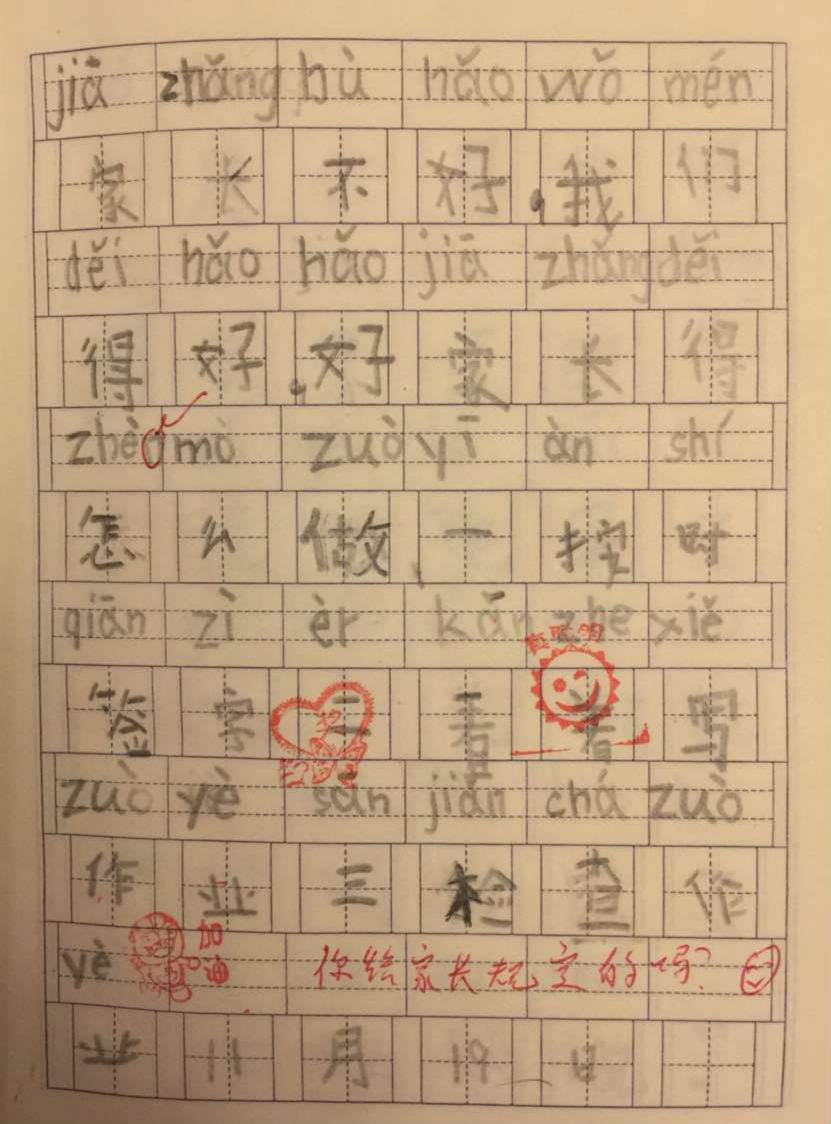 jiā zhǎng bù hǎo wǒ mén
家长不好,我们
děi hǎo hǎo jiā zhǎng děi
得好。好家长得
zhè mò zuò yī àn shí
怎么做、一按时
qiān zì èr kān zhe xiě
真聪明
签字二看着写
zuò yè sān jiǎn chá zuò
作业三检查作
yè 加油 你给家长规定的吗?
业11月19日